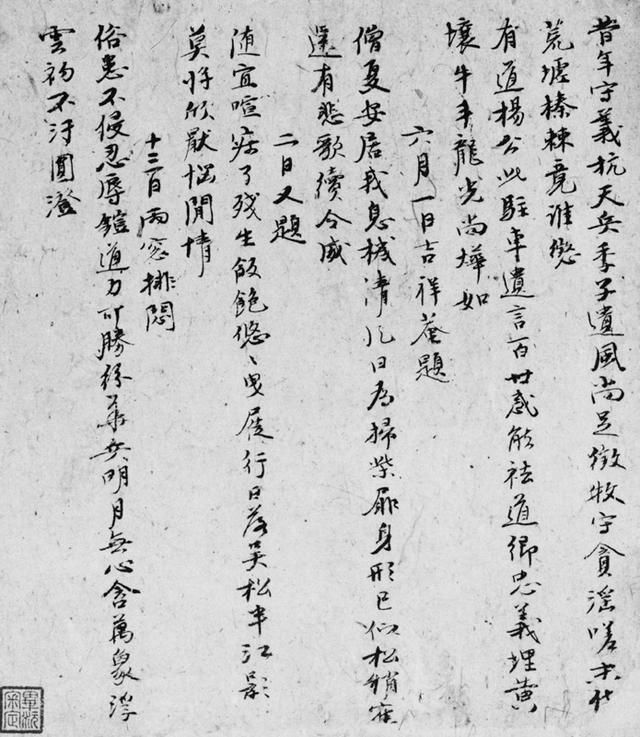 昔年守義抗天兵季子遺風尚足徵牧守貪滛嗟末代
荒墟榛棘竟誰懲
有道楊公此駐車遺言百世感能祛道鄉忠義埋黄
壤牛斗龍光尚燁如
六月一日吉祥菴題
僧夏安居我息機清風日為掃柴扉身形已似松梢寉
還有悲歌續令威
二日又題
随宜喧寂了殘生飯飽悠々曳屐行日落吴松半江影
莫将欣厭惱閒情
十三日雨窓排悶
俗恚不侵忍辱鎧道力可勝紛華兵明月無心含萬象浮
雲初不汙圓澄
畢沅審定